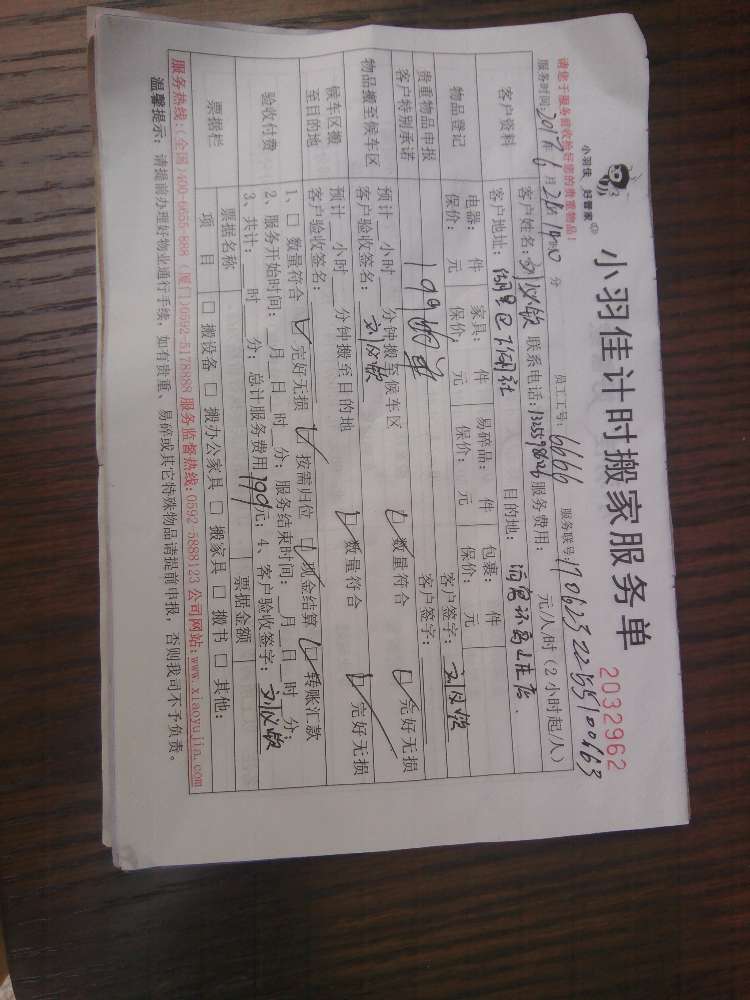 小羽佳 好管家
小羽佳计时搬家服务单
2032962
请您于服务前收拾好您的贵重物品！
员工工号： 6666 服务联号： 17062322551100163
服务时间： 2017年6月 日 分
客户资料
客户姓名： 联系电话： 服务费用： 元/人/时（2小时起/人）
客户地址： 目的地：
物品登记
电器： 件 家具： 件 易碎品： 件 包裹： 件
保价： 元 保价： 元 保价： 元 保价： 元
贵重物品申报
客户签字：
客户特别承诺
199 客户签字：
物品搬至候车区
预计__小时__分钟搬至候车区 □数量符合 □完好无损
客户验收签名：
候车区搬至目的地
预计__小时__分钟搬至目的地 □数量符合 □完好无损
客户验收签名：
验收付费
1、□ 数量符合 □ 完好无损 □ 按需归位 □ 现金结算 □ 转账汇款
2、服务开始时间：__月__日__时__分；服务结束时间：__月__日__时__分；
3、共计： 时 分；总计服务费用 199 元；4、客户验收签字：
票据栏
票据名称 票据金额
项 目 □ 搬设备 □ 搬办公家具 □ 搬家具 □ 搬书 □ 其他：
服务热线：(全国)400-6655-888 (厦门)0592-5178888 服务监督热线：0592-5888123 公司网站：www.xiaoyujia.com
温馨提示：请提前办理好物业通行手续，如有贵重、易碎或其它特殊物品请提前申报，否则我司不予负责。